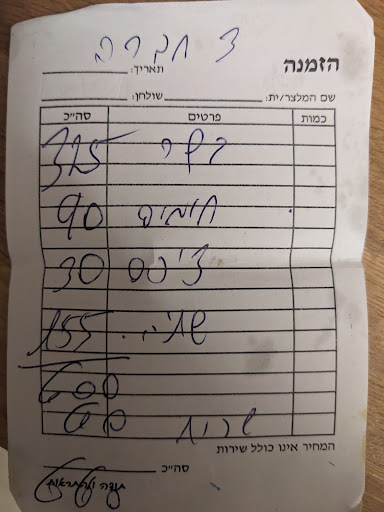 הזמנה
תאריך:
שם המלצר/ית: שולחן:
כמות פרטים סה"כ
בשר 325
חומוס 90
צ'יפס 30
שתיה 155
600
שרות 60
המחיר אינו כולל שירות
סה"כ
תודה ולהתראות